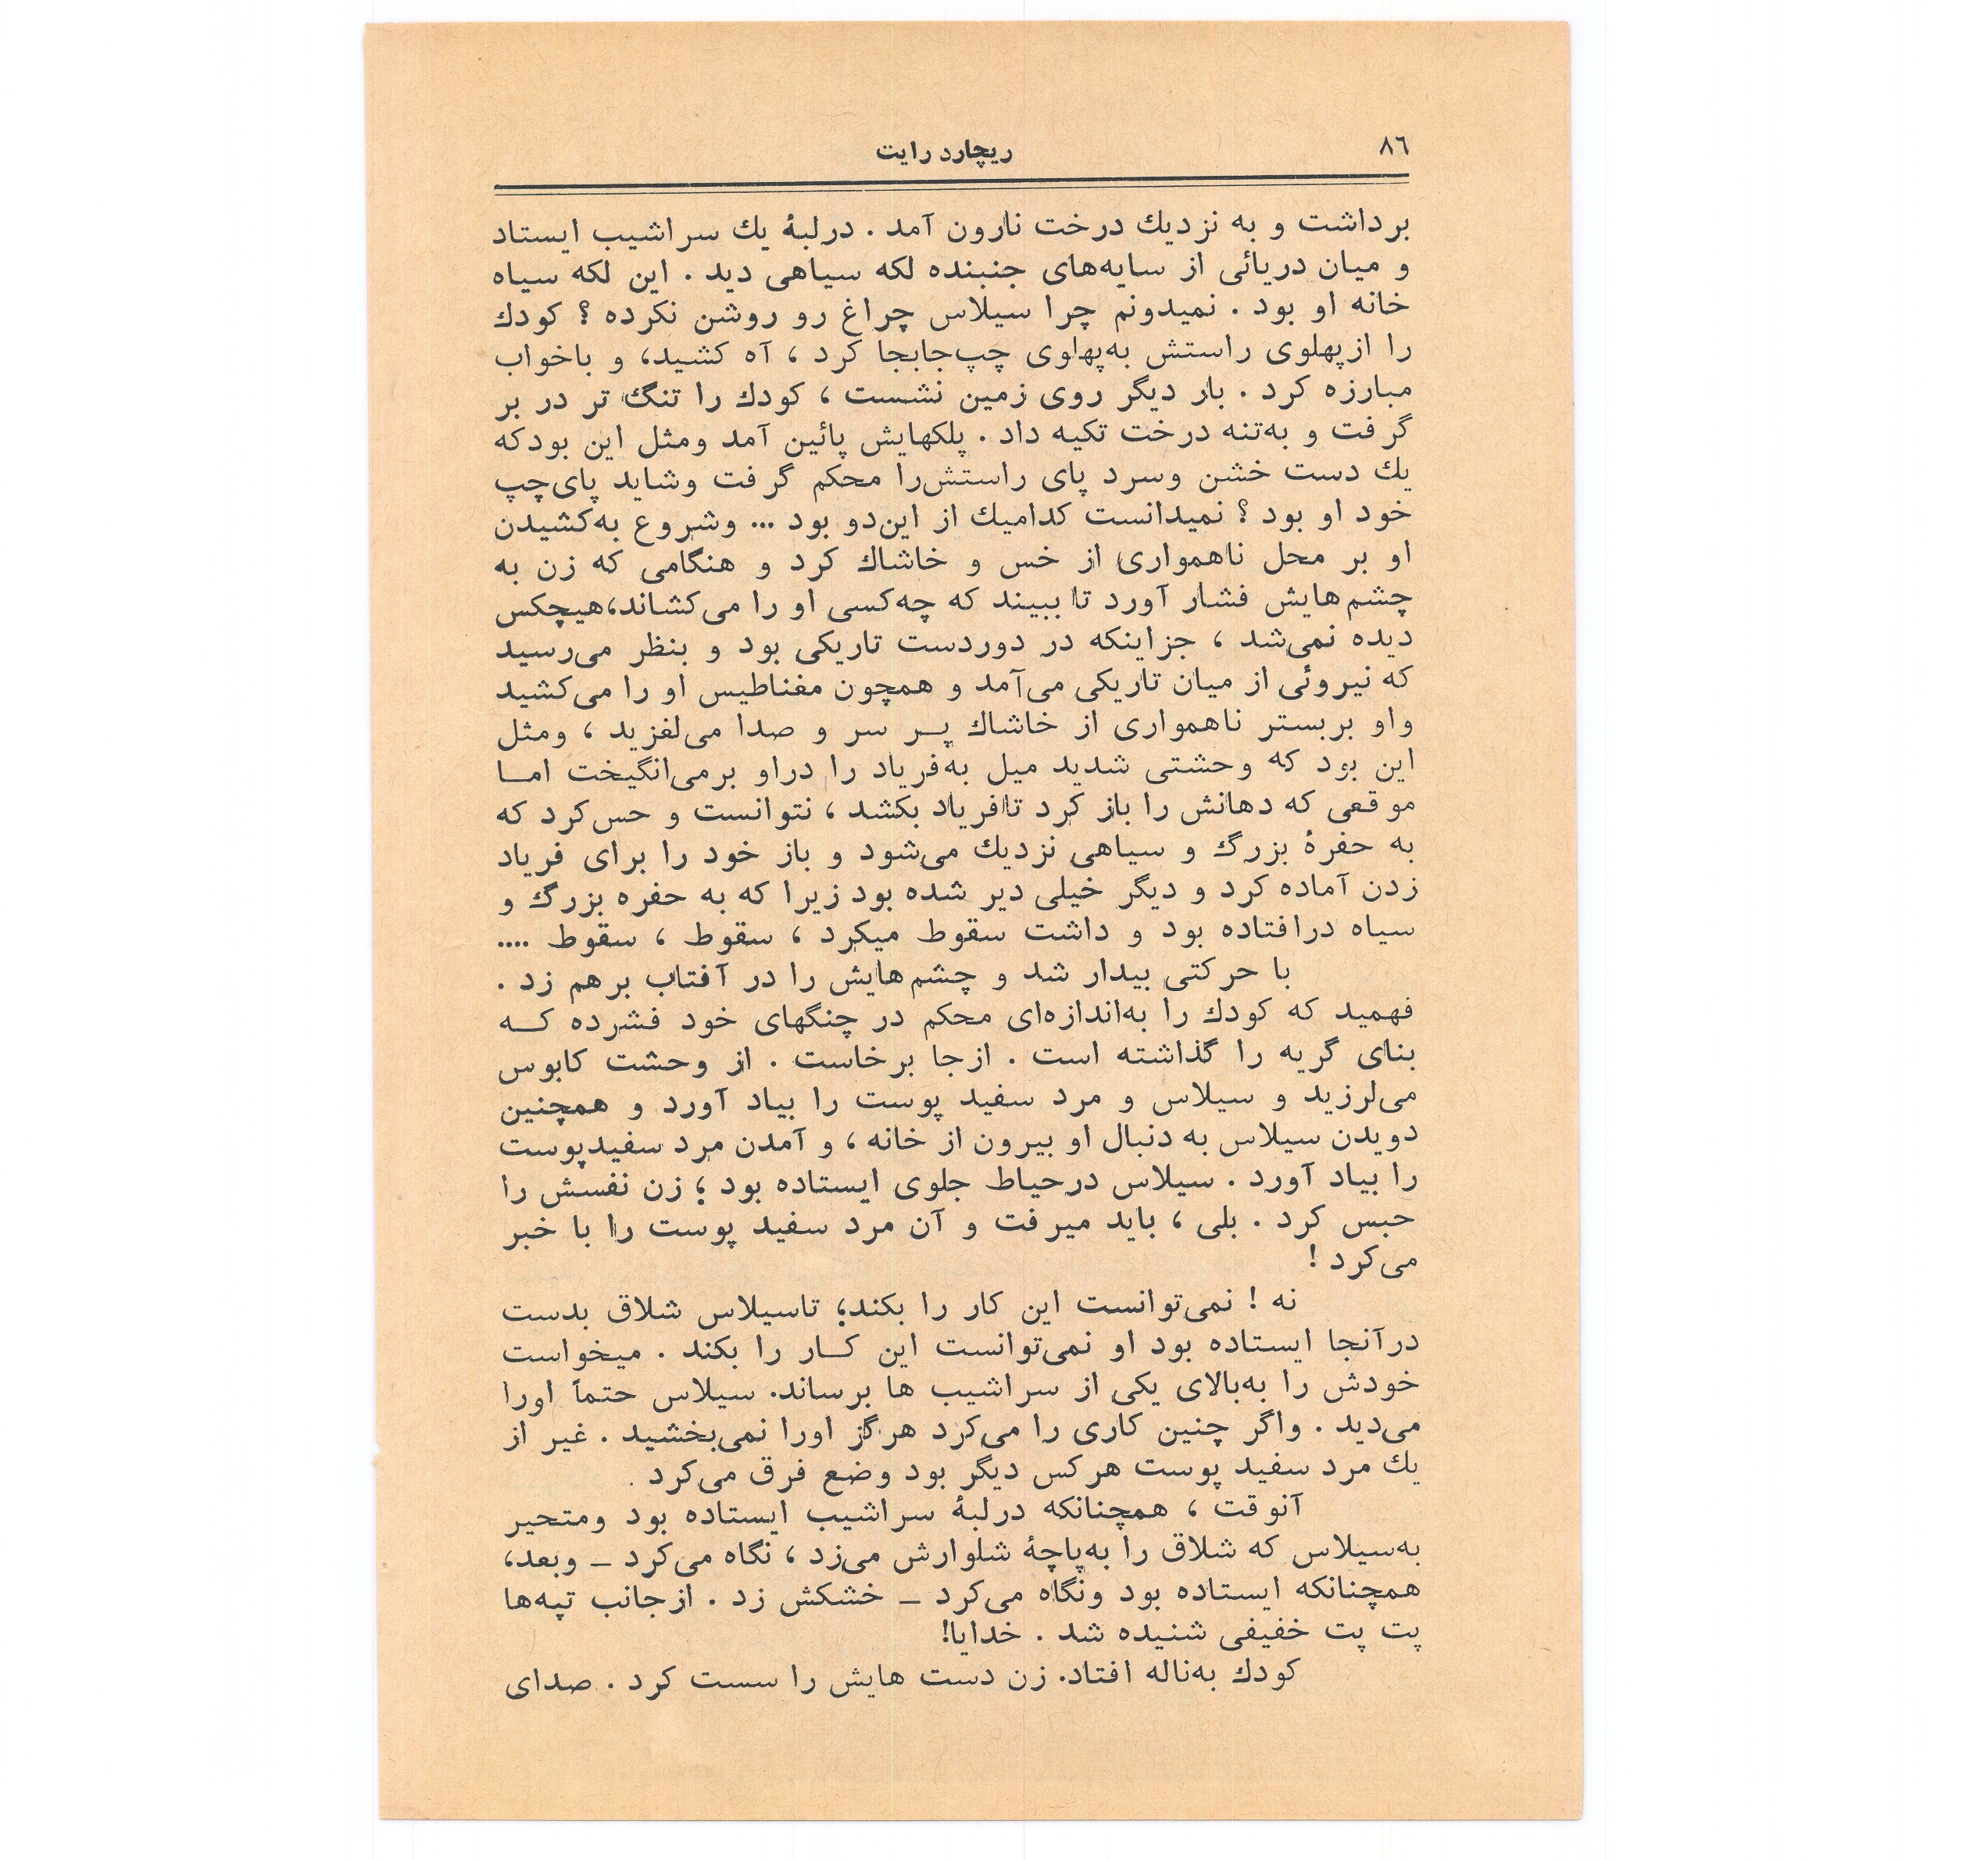 ٨٦
ریچارد رایت
برداشت و به نزدیك درخت نارون آمد . درلبهٔ یك سراشیب ایستاد
و میان دریائی از سایه‌های جنبنده لکه سیاهی دید . این لکه سیاه
خانه او بود . نمیدونم چرا سیلاس چراغ رو روشن نکرده ؟ کودك
را ازپهلوی راستش به‌پهلوی چپ‌جابجا کرد ، آه کشید، و باخواب
مبارزه کرد . بار دیگر روی زمین نشست ، کودك را تنگ تر در بر
گرفت و به‌تنه درخت تکیه داد . پلکهایش پائین آمد ومثل این بودکه
یك دست خشن وسرد پای راستش‌را محکم گرفت وشاید پای‌چپ
خود او بود ؟ نمیدانست کدامیك از این‌دو بود ... وشروع به‌کشیدن
او بر محل ناهمواری از خس و خاشاك کرد و هنگامی که زن به
چشم‌هایش فشار آورد تا ببیند که چه‌کسی او را می‌کشاند،هیچکس
دیده نمی‌شد ، جزاینکه در دوردست تاریکی بود و بنظر می‌رسید
که نیروئی از میان تاریکی می‌آمد و همچون مغناطیس او را می‌کشید
واو بربستر ناهمواری از خاشاك پـر سر و صدا می‌لغزید ، ومثل
این بود که وحشتی شدید میل به‌فریاد را دراو برمی‌انگیخت امـا
موقعی که دهانش را باز کرد تافریاد بکشد ، نتوانست و حس‌کرد که
به حفرهٔ بزرگ و سیاهی نزدیك می‌شود و باز خود را برای فریاد
زدن آماده کرد و دیگر خیلی دیر شده بود زیرا که به حفره بزرگ و
سیاه درافتاده بود و داشت سقوط میکرد ، سقوط ، سقوط ....
با حرکتی بیدار شد و چشم‌هایش را در آفتاب برهم زد .
فهمید که کودك را به‌اندازه‌ای محکم در چنگهای خود فشرده کـه
بنای گریه را گذاشته است . ازجا برخاست . از وحشت کابوس
می‌لرزید و سیلاس و مرد سفید پوست را بیاد آورد و همچنین
دویدن سیلاس به دنبال او بیرون از خانه ، و آمدن مرد سفیدپوست
را بیاد آورد . سیلاس درحیاط جلوی ایستاده بود ؛ زن نفسش را
حبس کرد . بلی ، باید میرفت و آن مرد سفید پوست را با خبر
می‌کرد !
نه ! نمی‌توانست این کار را بکند؛ تاسیلاس شلاق بدست
درآنجا ایستاده بود او نمی‌توانست این کـار را بکند . میخواست
خودش را به‌بالای یکی از سراشیب ها برساند. سیلاس حتماً اورا
می‌دید . واگر چنین کاری را می‌کرد هرگز اورا نمی‌بخشید . غیر از
یك مرد سفید پوست هرکس دیگر بود وضع فرق می‌کرد .
آنوقت ، همچنانکه درلبهٔ سراشیب ایستاده بود ومتحیر
به‌سیلاس که شلاق را به‌پاچهٔ شلوارش می‌زد ، نگاه می‌کرد _ وبعد،
همچنانکه ایستاده بود ونگاه می‌کرد _ خشکش زد . ازجانب تپه‌ها
پت پت خفیفی شنیده شد . خدایا!
کودك به‌ناله افتاد. زن دست هایش را سست کرد . صدای